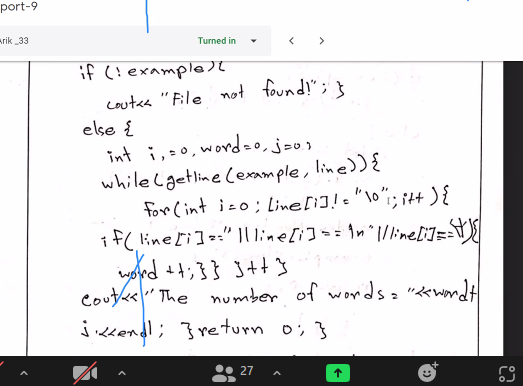 port-9
Arik _33 Turned in
if (!example){
cout<< "File not found!"; }
else {
int i,=0, word=0, j=0;
while(getline(example, line)){
for(int i=0; line[i]!="\0"; i++){
if(line[i]==" "||line[i]=='\n'||line[i]==
word ++;}} j++ }
cout<<"The number of words="<<word+
j<<endl; }return 0; }
27